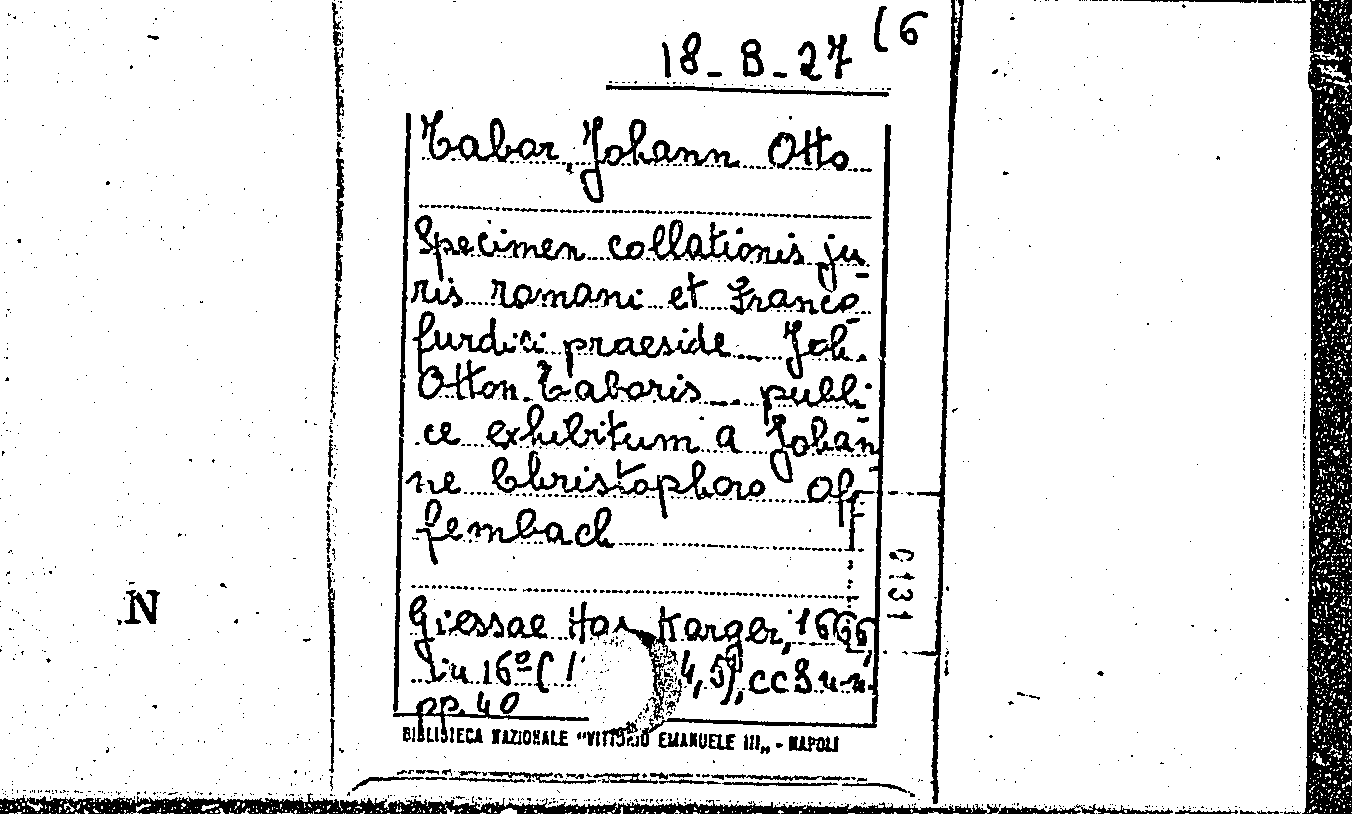 18-B-27 (6
Tabar, Johann Otto
Specimen collationis ju-
ris romani et Franco-
furdici praeside... Joh.
Otton. Tabaris... publi-
ce exhibitum a Johan-
ne Christophoro Of-
fembach
Giessae Karger, 1666,
in 16° ( 4,5), cc8 n.n.
pp. 40
BIBLIOTECA NAZIONALE "VITTORIO EMANUELE III„ - NAPOLI
0131
N